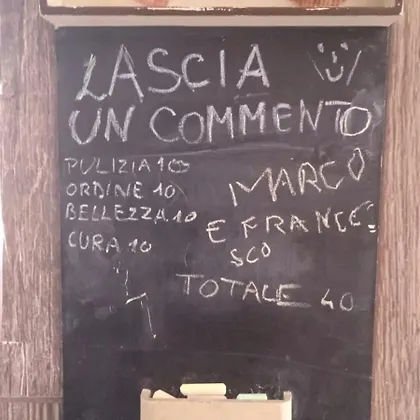 LASCIA
UN COMMENTO
PULIZIA 10
ORDINE 10
BELLEZZA 10
CURA 10
MARCO
E FRANCE=
SCO
TOTALE 40